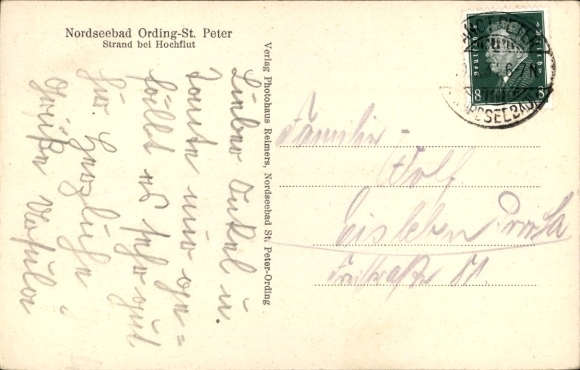 Nordseebad Ording-St. Peter
Strand bei Hochflut
Verlag Photohaus Reimers, Nordseebad St. Peter-Ording
Lieber Onkel u.
Tante mir ge=
fällt es sehr gut
hier. Herzliche
Grüße
8 8
NORDSEEBAD
Familie
Eisleben
51